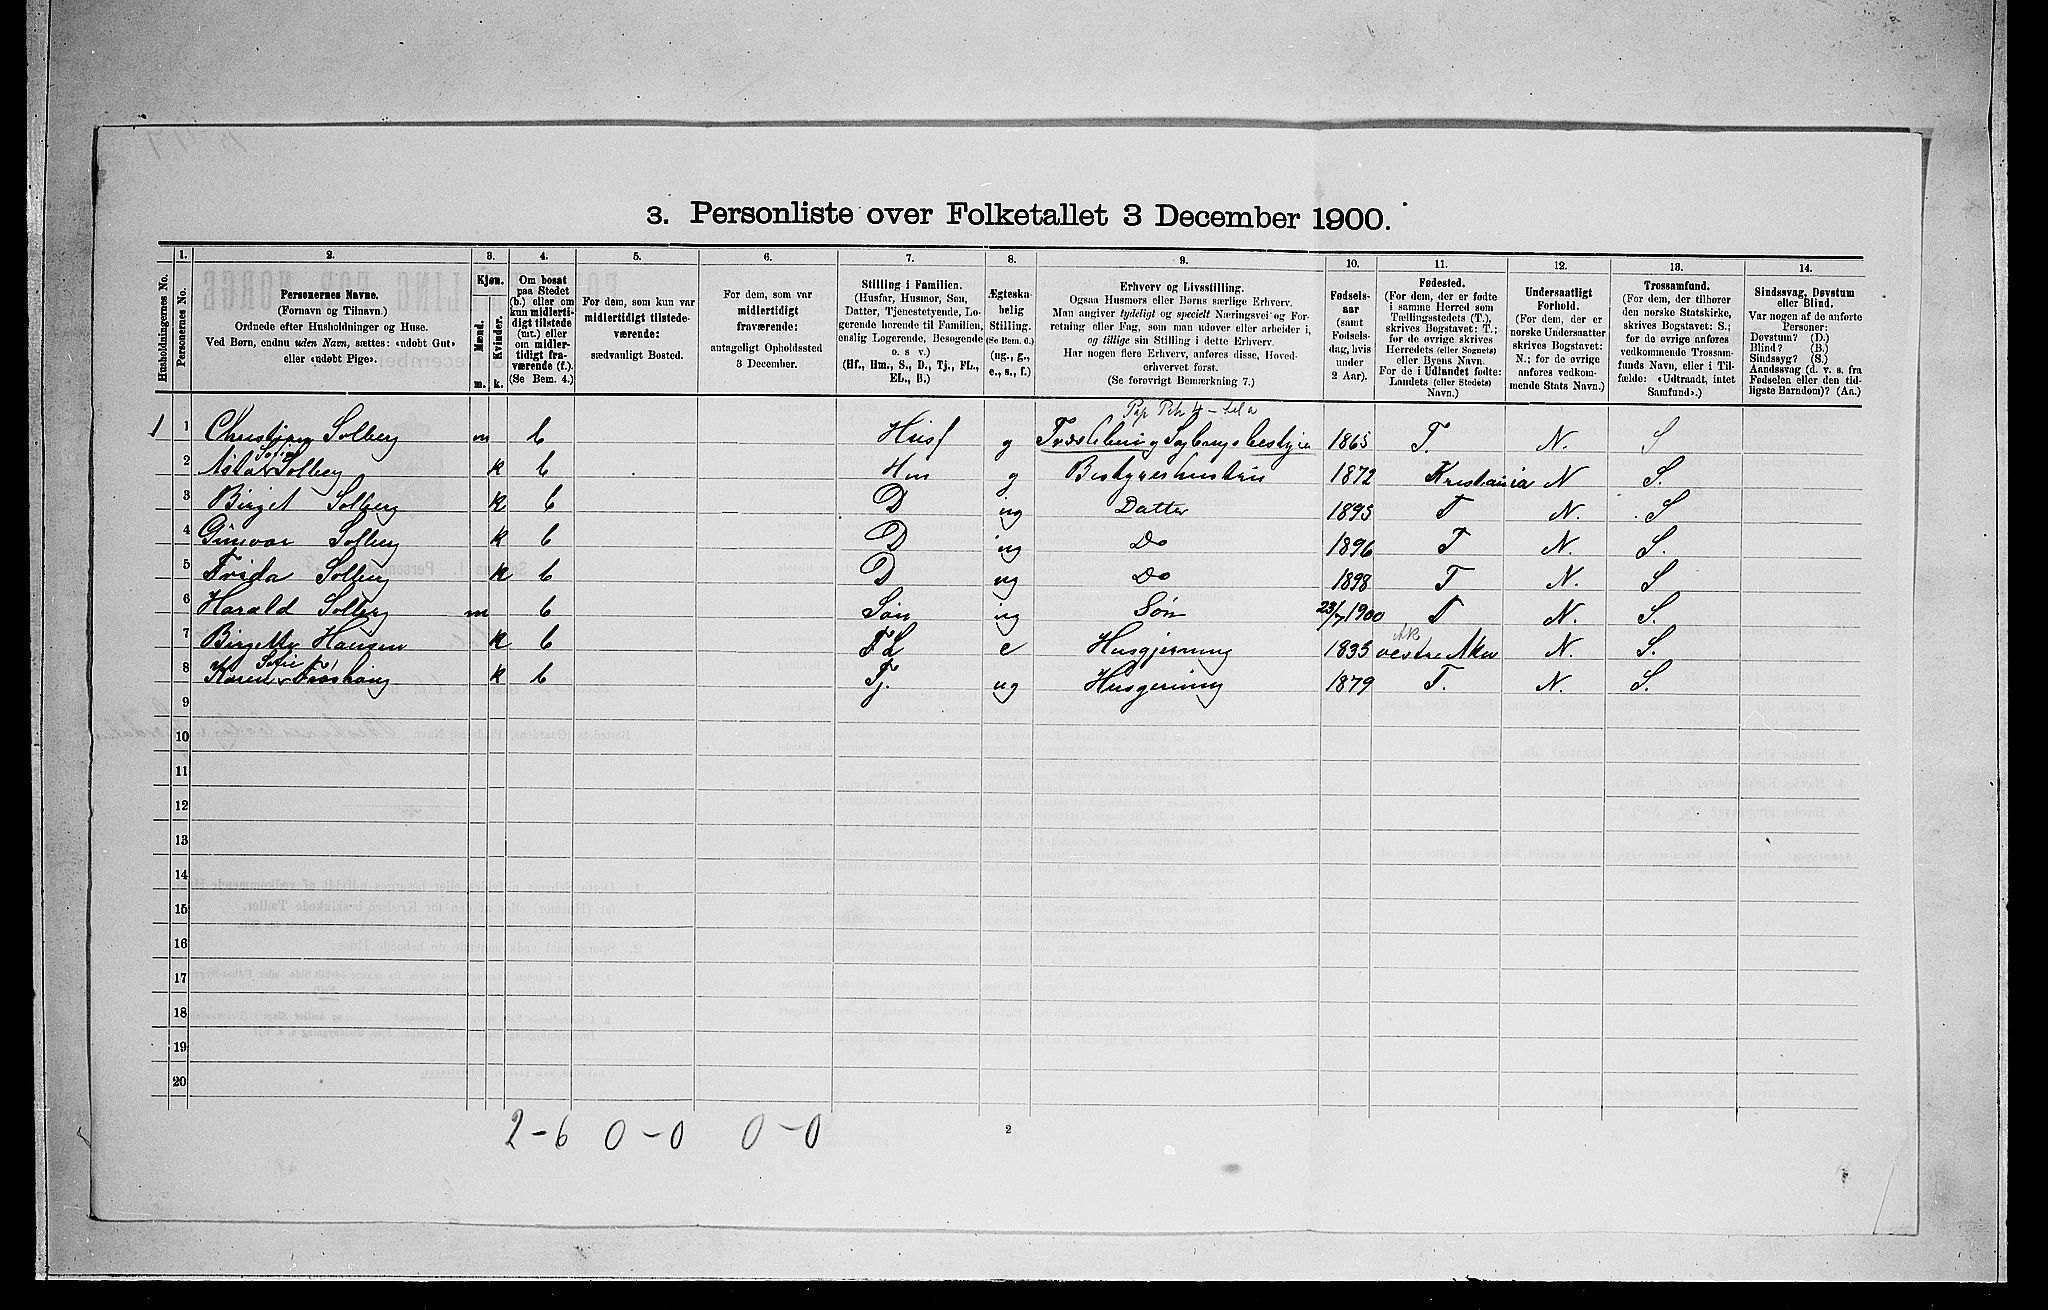 3. Personliste over Folketallet 3 December 1900.
Husholdningernes No.
1.
Personernes No.
2.
Personernes Navne.
(Fornavn og Tilnavn.)
Ordnede efter Husholdninger og Huse.
Ved Børn, endnu uden Navn, sættes: «udøbt Gut»
eller «udøbt Pige».
3.
Kjøn.
Mænd.
Kvinder.
m. k.
4.
Om bosat
paa Stedet
(b.) eller om
kun midlerti-
digt tilstede
(mt.) eller
om midler-
tidigt fra-
værende (f.).
(Se Bem. 4.)
5.
For dem, som kun var
midlertidigt tilstede-
værende:
sædvanligt Bosted.
6.
For dem, som var
midlertidigt
fraværende:
antageligt Opholdssted
3 December.
7.
Stilling i Familien.
(Husfar, Husmor, Søn,
Datter, Tjenestetyende, Lo-
gerende hørende til Familien,
enslig Logerende, Besøgende
o. s. v.)
(Hf., Hm., S., D., Tj., FL.,
EL., B.)
8.
Ægteska-
belig
Stilling.
(Se Bem. 6.)
(ug., g.,
e., s., f.)
9.
Erhverv og Livsstilling.
Ogsaa Husmors eller Børns særlige Erhverv.
Man angiver tydeligt og specielt Næringsvei og For-
retning eller Fag, som man udøver eller arbeider i,
og tillige sin Stilling i dette Erhverv.
Har nogen flere Erhverv, anføres disse, Hoved-
erhvervet først.
(Se forøvrigt Bemærkning 7.)
10.
Fødsels-
aar
(samt
Fødsels-
dag, hvis
under
2 Aar).
11.
Fødested.
(For dem, der er fødte
i samme Herred som
Tællingsstedets (T.),
skrives Bogstavet: T.;
for de øvrige skrives
Herredets (eller Sognets)
eller Byens Navn.
For de i Udlandet fødte:
Landets (eller Stedets)
Navn.)
12.
Undersaatligt
Forhold.
(For dem, der er
norske Undersaatter
skrives Bogstavet:
N.; for de øvrige
anføres vedkom-
mende Stats Navn.)
13.
Trossamfund.
(For dem, der tilhører
den norske Statskirke,
skrives Bogstavet: S.;
for de øvrige anføres
vedkommende Trossam-
funds Navn, eller i Til-
fælde: «Udtraadt, intet
Samfund».)
14.
Sindssvag, Døvstum
eller Blind.
Var nogen af de anførte
Personer:
Døvstum? (D.)
Blind? (B.)
Sindssyg? (S.)
Aandssvag (d. v. s. fra
Fødselen eller den tid-
ligste Barndom)? (Aa.)
1 1 Christian Solberg m b Husf g 1865 T. N. S
2 Asta Sofie Solberg k b Hm g Bestyrershustru 1872 Kristiania N S.
3 Birget Solberg k b D ug Datter 1895 T N. S
4 Gunvor Solberg k b D ug Do 1896 T N. S.
5 Frida Solberg k b D ug Do 1898 T N. S
6 Harald Solberg m b Søn ug Søn 23/7 1900 T N. S.
7 Birgitte Hansen k b FL e Husgjerning 1835 vestre Aker N. S.
8 Karen Sofie k b Tj. ug Husgerning 1879 T. N. S.
9
10
11
12
13
14
15
16
17
18
19
20
2-6 0-0 0-0
2